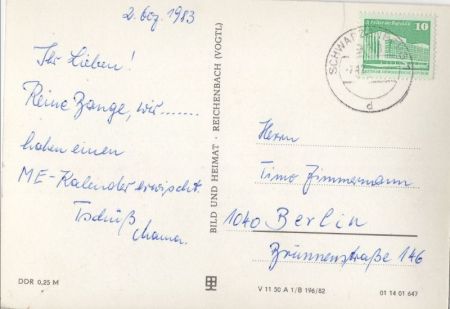 2. Dez. 1983
Ihr Lieben!
Keine Bange, wir.......
haben einen
ME-Kalender erwischt.
Tschüß
Mama.
DDR 0,25 M
BILD UND HEIMAT · REICHENBACH (VOGTL)
10
SCHWARZENBERG
d
Herrn
Timo Zimmermann
1040 Berlin
Brunnenstraße 146
V 11 50 A 1/B 196/82
01 14 01 647